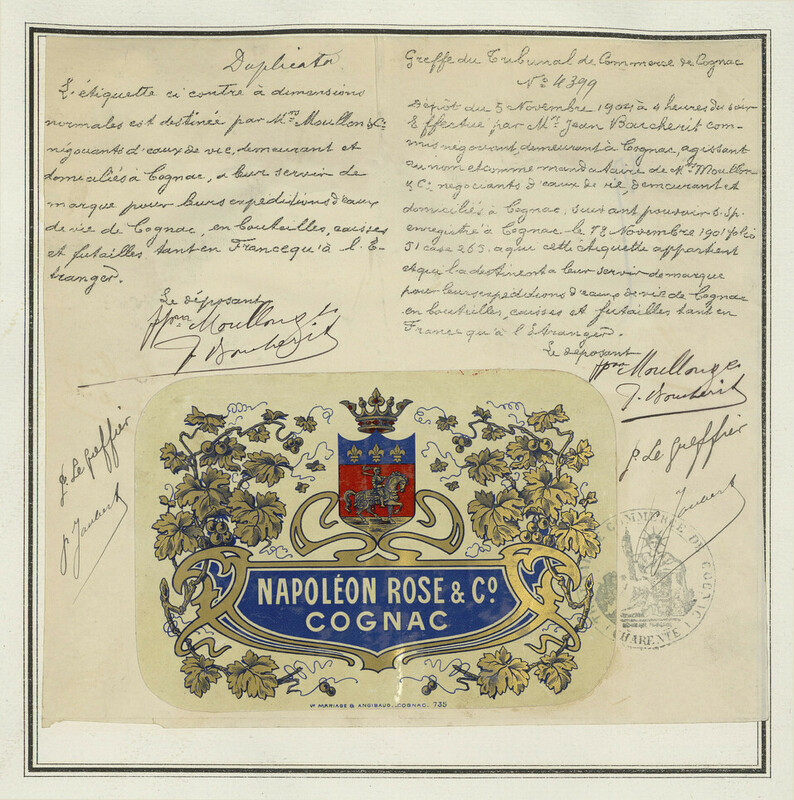 Duplicata
L'étiquette ci contre à dimensions
normales est destinée par Mrs Moullon & Co
négociants d'eaux de vie, demeurant et
domiciliés à Cognac, a leur servir de
marque pour leurs expéditions d'eaux
de vie de Cognac, en bouteilles, caisses
et futailles tant en France qu'à l'É-
tranger.
Le déposant
Moullon & Co
J. Boucherit
p. Le Greffier
p. Joubert
Greffe du Tribunal de Commerce de Cognac
No 4399
Dépôt du 5 Novembre 1904 à 4 heures du soir
Effectué par Mr Jean Boucherit com-
mis negociant, demeurant à Cognac, agissant
au nom et comme mandataire de Mrs Moullon
& Co negociants d'eaux de vie, demeurant et
domiciliés à Cognac, suivant pouvoir s. sp.
enregistré à Cognac le 18 Novembre 1901 folio
51 case 265. a que cette étiquette appartient
et qu'il a destinent a leur servir de marque
pour leurs expéditions d'eaux de vie de Cognac
en bouteilles, caisses et futailles tant en
France qu'à l'étranger.
Le déposant
Moullon & Co
J. Boucherit
p. Le Greffier
Joubert
COMMERCE DE COGNAC
CHARENTE
NAPOLÉON ROSE & Co
COGNAC
Vve MARIAGE & ANGIBAUD, COGNAC. 735